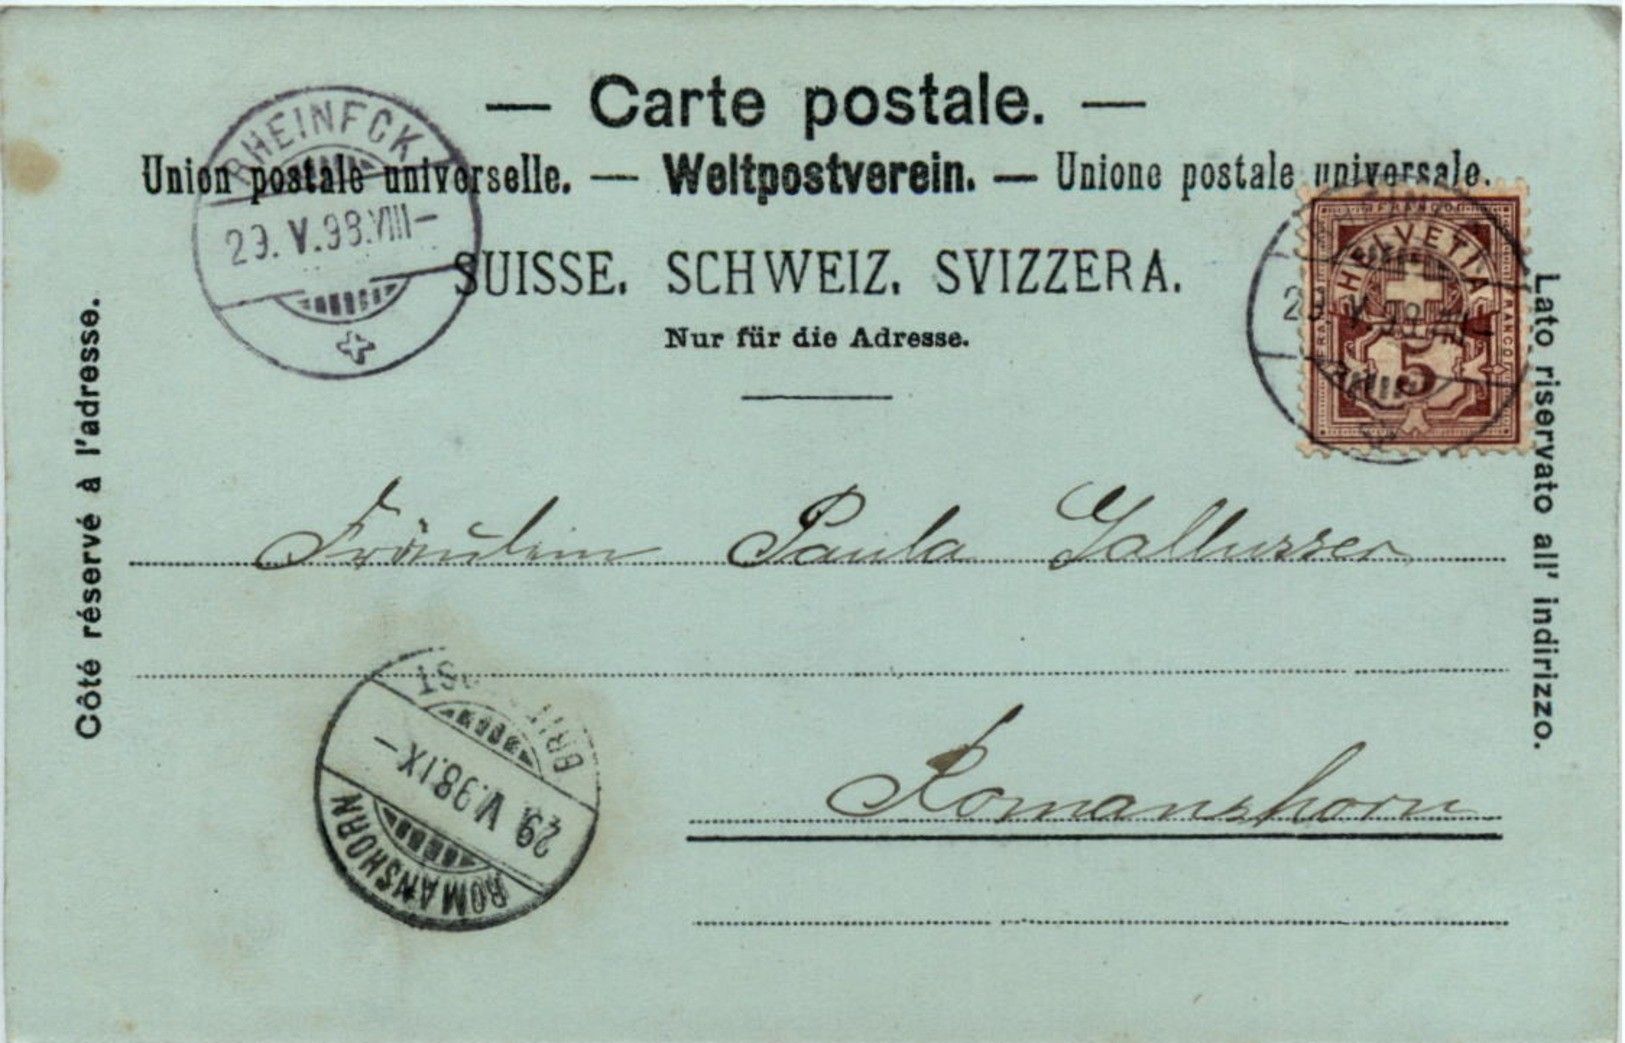 — Carte postale. —
Union postale universelle. — Weltpostverein. — Unione postale universale.
SUISSE. SCHWEIZ. SVIZZERA.
Nur für die Adresse.
RHEINECK
29. V. 98. VIII –
HELVETIA
FRANCO
FRANCO
5
29. V. 98
Côté réservé à l'adresse.
Lato riservato all' indirizzo.
Fräulein Paula Gallusser
Romanshorn
29. V. 98. IX –
ROMANSHORN